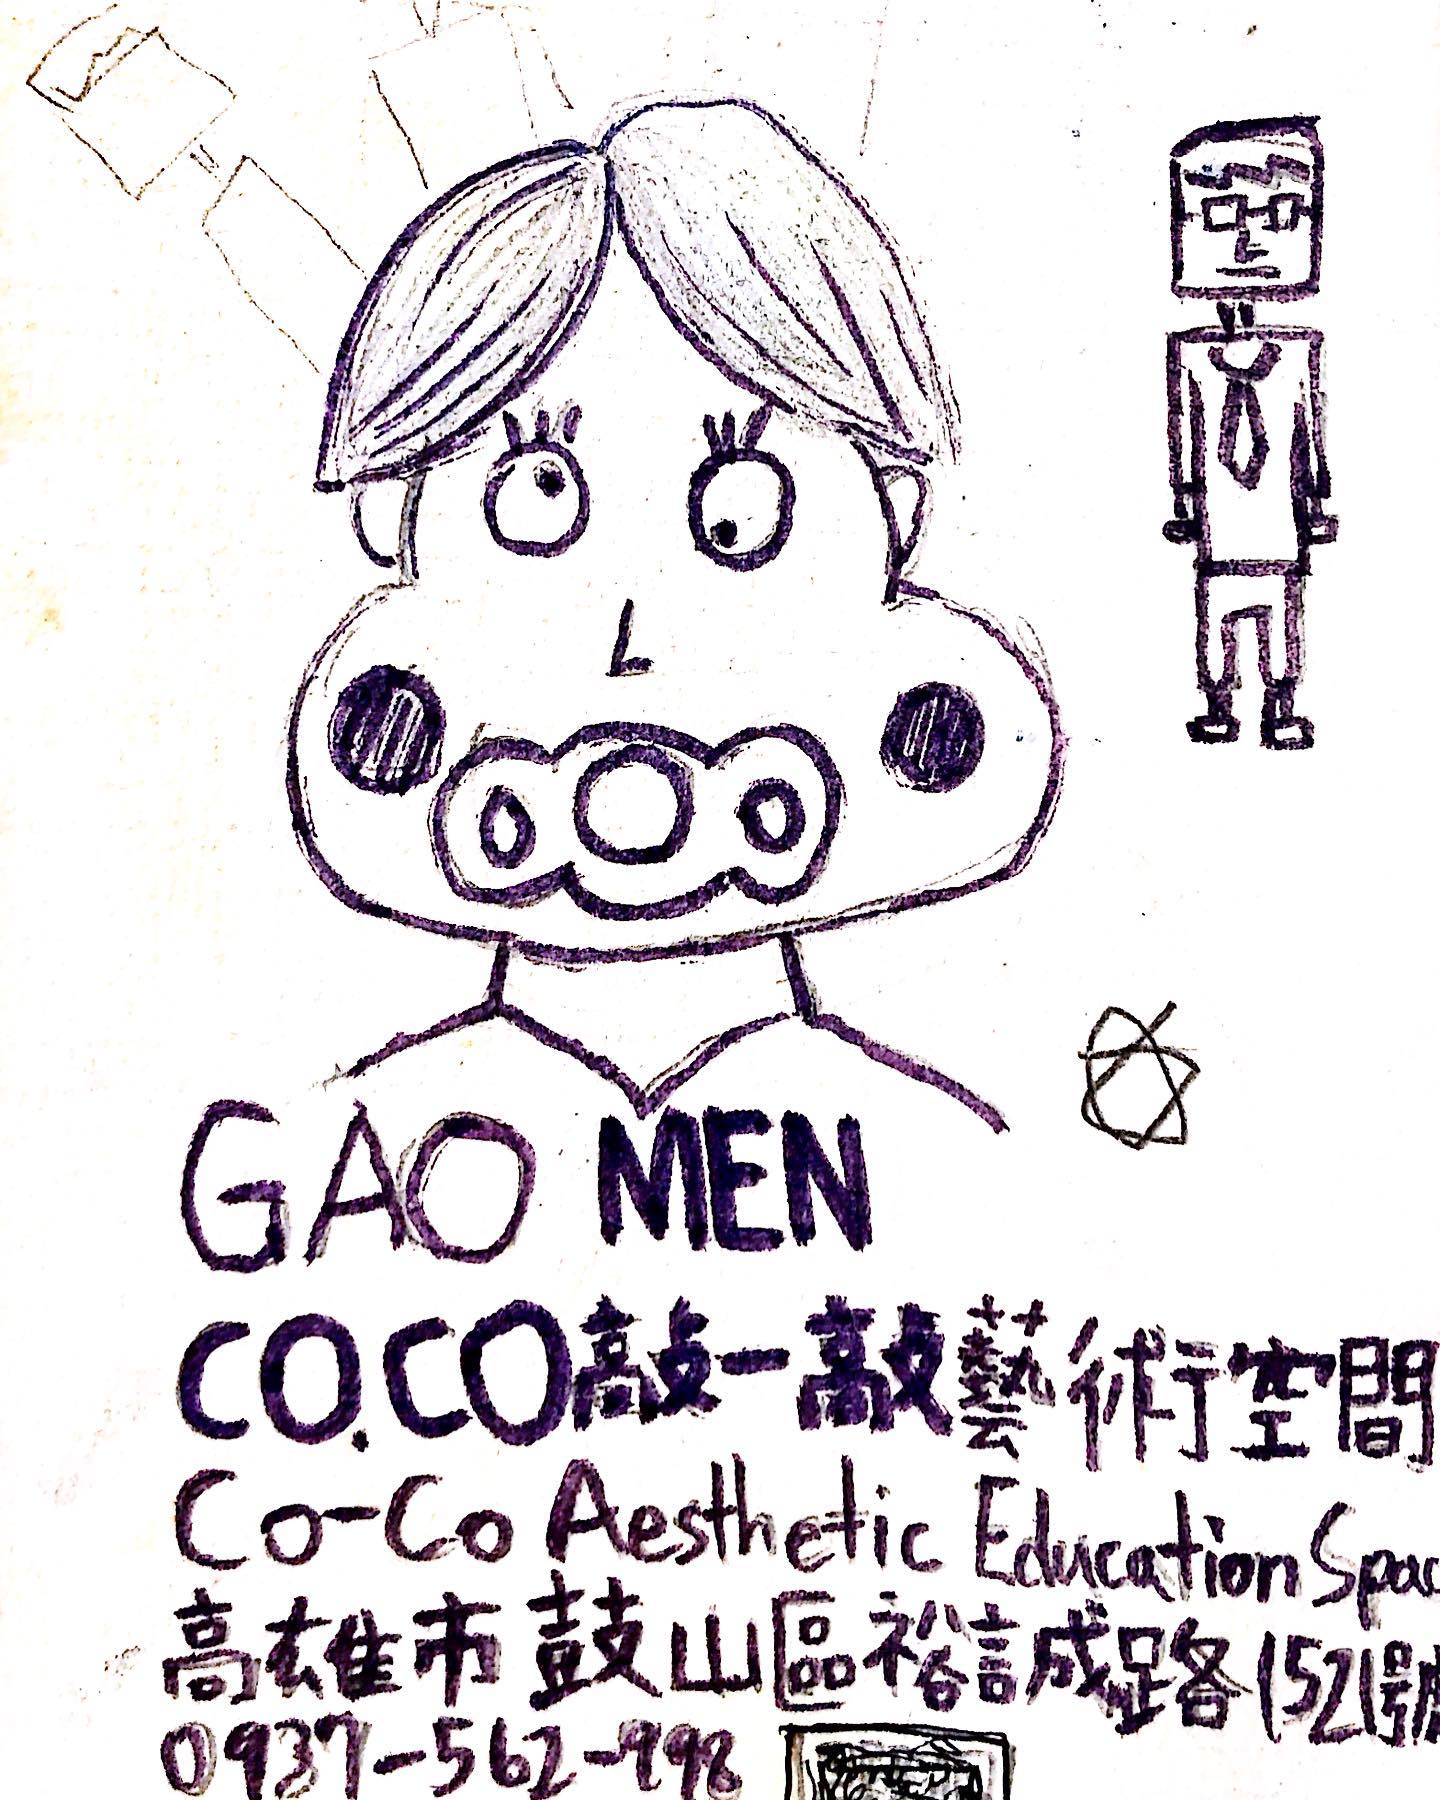 GAO MEN
CO.CO敲一敲藝術空間
Co-Co Aesthetic Education Spac
高雄市鼓山區裕誠路1521號
0937-562-998